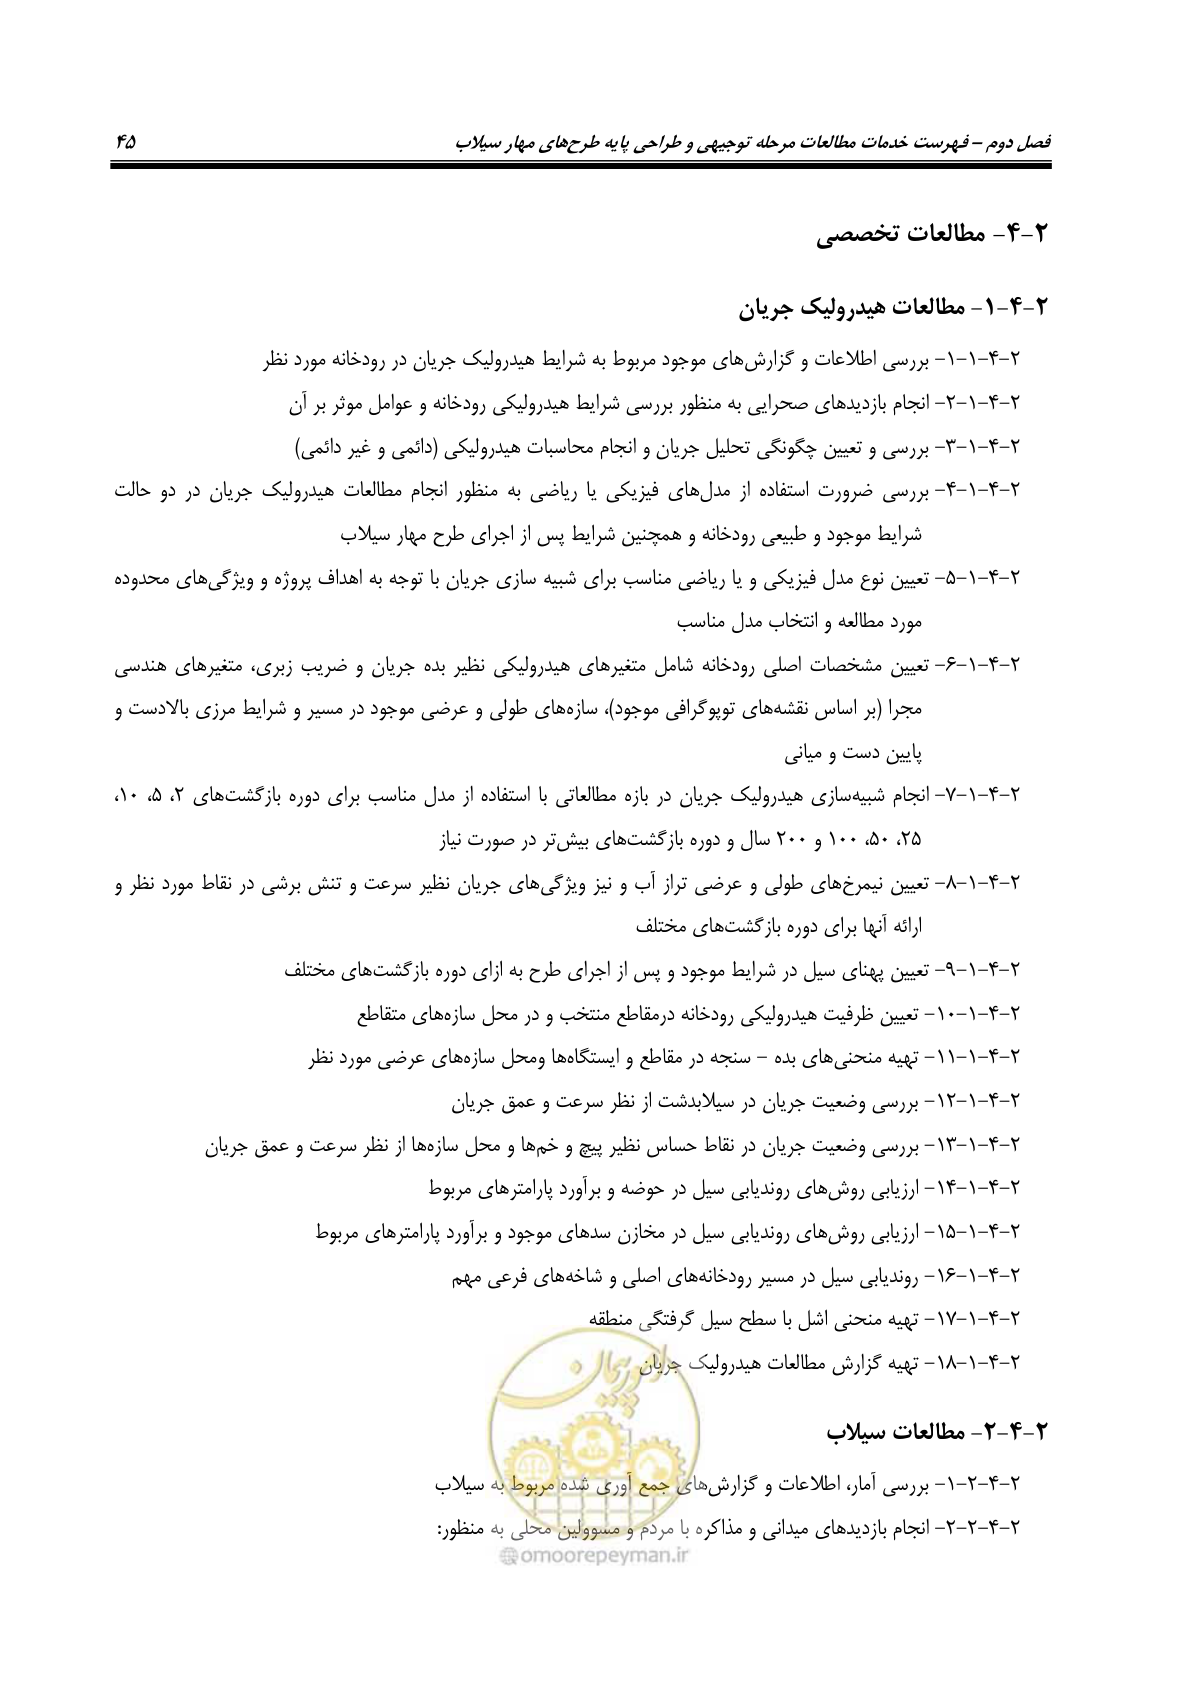 فصل دوم – فهرست خدمات مطالعات مرحله توجیهی و طراحی پایه طرح‌های مهار سیلاب ۴۵
۲-۴- مطالعات تخصصی
۲-۴-۱- مطالعات هیدرولیک جریان
۲-۴-۱-۱- بررسی اطلاعات و گزارش‌های موجود مربوط به شرایط هیدرولیک جریان در رودخانه مورد نظر
۲-۴-۱-۲- انجام بازدیدهای صحرایی به منظور بررسی شرایط هیدرولیکی رودخانه و عوامل موثر بر آن
۲-۴-۱-۳- بررسی و تعیین چگونگی تحلیل جریان و انجام محاسبات هیدرولیکی (دائمی و غیر دائمی)
۲-۴-۱-۴- بررسی ضرورت استفاده از مدل‌های فیزیکی یا ریاضی به منظور انجام مطالعات هیدرولیک جریان در دو حالت
شرایط موجود و طبیعی رودخانه و همچنین شرایط پس از اجرای طرح مهار سیلاب
۲-۴-۱-۵- تعیین نوع مدل فیزیکی و یا ریاضی مناسب برای شبیه سازی جریان با توجه به اهداف پروژه و ویژگی‌های محدوده
مورد مطالعه و انتخاب مدل مناسب
۲-۴-۱-۶- تعیین مشخصات اصلی رودخانه شامل متغیرهای هیدرولیکی نظیر بده جریان و ضریب زبری، متغیرهای هندسی
مجرا (بر اساس نقشه‌های توپوگرافی موجود)، سازه‌های طولی و عرضی موجود در مسیر و شرایط مرزی بالادست و
پایین دست و میانی
۲-۴-۱-۷- انجام شبیه‌سازی هیدرولیک جریان در بازه مطالعاتی با استفاده از مدل مناسب برای دوره بازگشت‌های ۲، ۵، ۱۰،
۲۵، ۵۰، ۱۰۰ و ۲۰۰ سال و دوره بازگشت‌های بیش‌تر در صورت نیاز
۲-۴-۱-۸- تعیین نیمرخ‌های طولی و عرضی تراز آب و نیز ویژگی‌های جریان نظیر سرعت و تنش برشی در نقاط مورد نظر و
ارائه آنها برای دوره بازگشت‌های مختلف
۲-۴-۱-۹- تعیین پهنای سیل در شرایط موجود و پس از اجرای طرح به ازای دوره بازگشت‌های مختلف
۲-۴-۱-۱۰- تعیین ظرفیت هیدرولیکی رودخانه درمقاطع منتخب و در محل سازه‌های متقاطع
۲-۴-۱-۱۱- تهیه منحنی‌های بده – سنجه در مقاطع و ایستگاه‌ها ومحل سازه‌های عرضی مورد نظر
۲-۴-۱-۱۲- بررسی وضعیت جریان در سیلابدشت از نظر سرعت و عمق جریان
۲-۴-۱-۱۳- بررسی وضعیت جریان در نقاط حساس نظیر پیچ و خم‌ها و محل سازه‌ها از نظر سرعت و عمق جریان
۲-۴-۱-۱۴- ارزیابی روش‌های روندیابی سیل در حوضه و برآورد پارامترهای مربوط
۲-۴-۱-۱۵- ارزیابی روش‌های روندیابی سیل در مخازن سدهای موجود و برآورد پارامترهای مربوط
۲-۴-۱-۱۶- روندیابی سیل در مسیر رودخانه‌های اصلی و شاخه‌های فرعی مهم
۲-۴-۱-۱۷- تهیه منحنی اشل با سطح سیل گرفتگی منطقه
۲-۴-۱-۱۸- تهیه گزارش مطالعات هیدرولیک جریان
امور پیمان
۲-۴-۲- مطالعات سیلاب
۲-۴-۲-۱- بررسی آمار، اطلاعات و گزارش‌های جمع آوری شده مربوط به سیلاب
۲-۴-۲-۲- انجام بازدیدهای میدانی و مذاکره با مردم و مسوولین محلی به منظور:
@omoorepeyman.ir